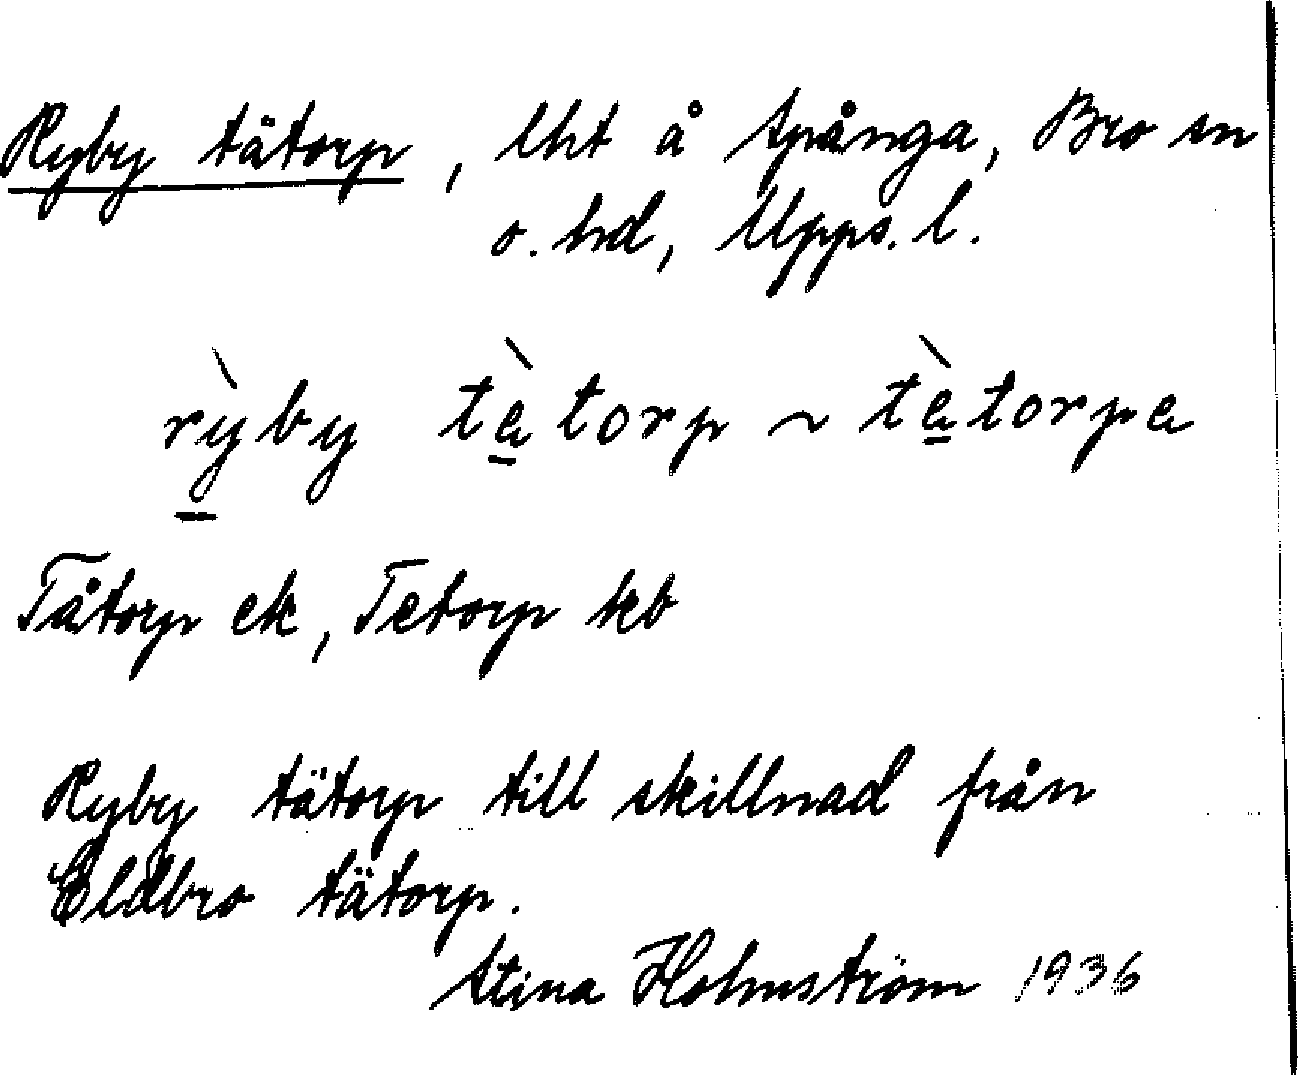 Ryby tätorp, lht å Spånga, Bro sn
o. hd, Upps. l.
rỳby tè̱torp ~ tè̱torpa
Tåtorp ek, Tetorp kb
Ryby tätorp till skillnad från
Eldbro tätorp.
Stina Holmström 1936